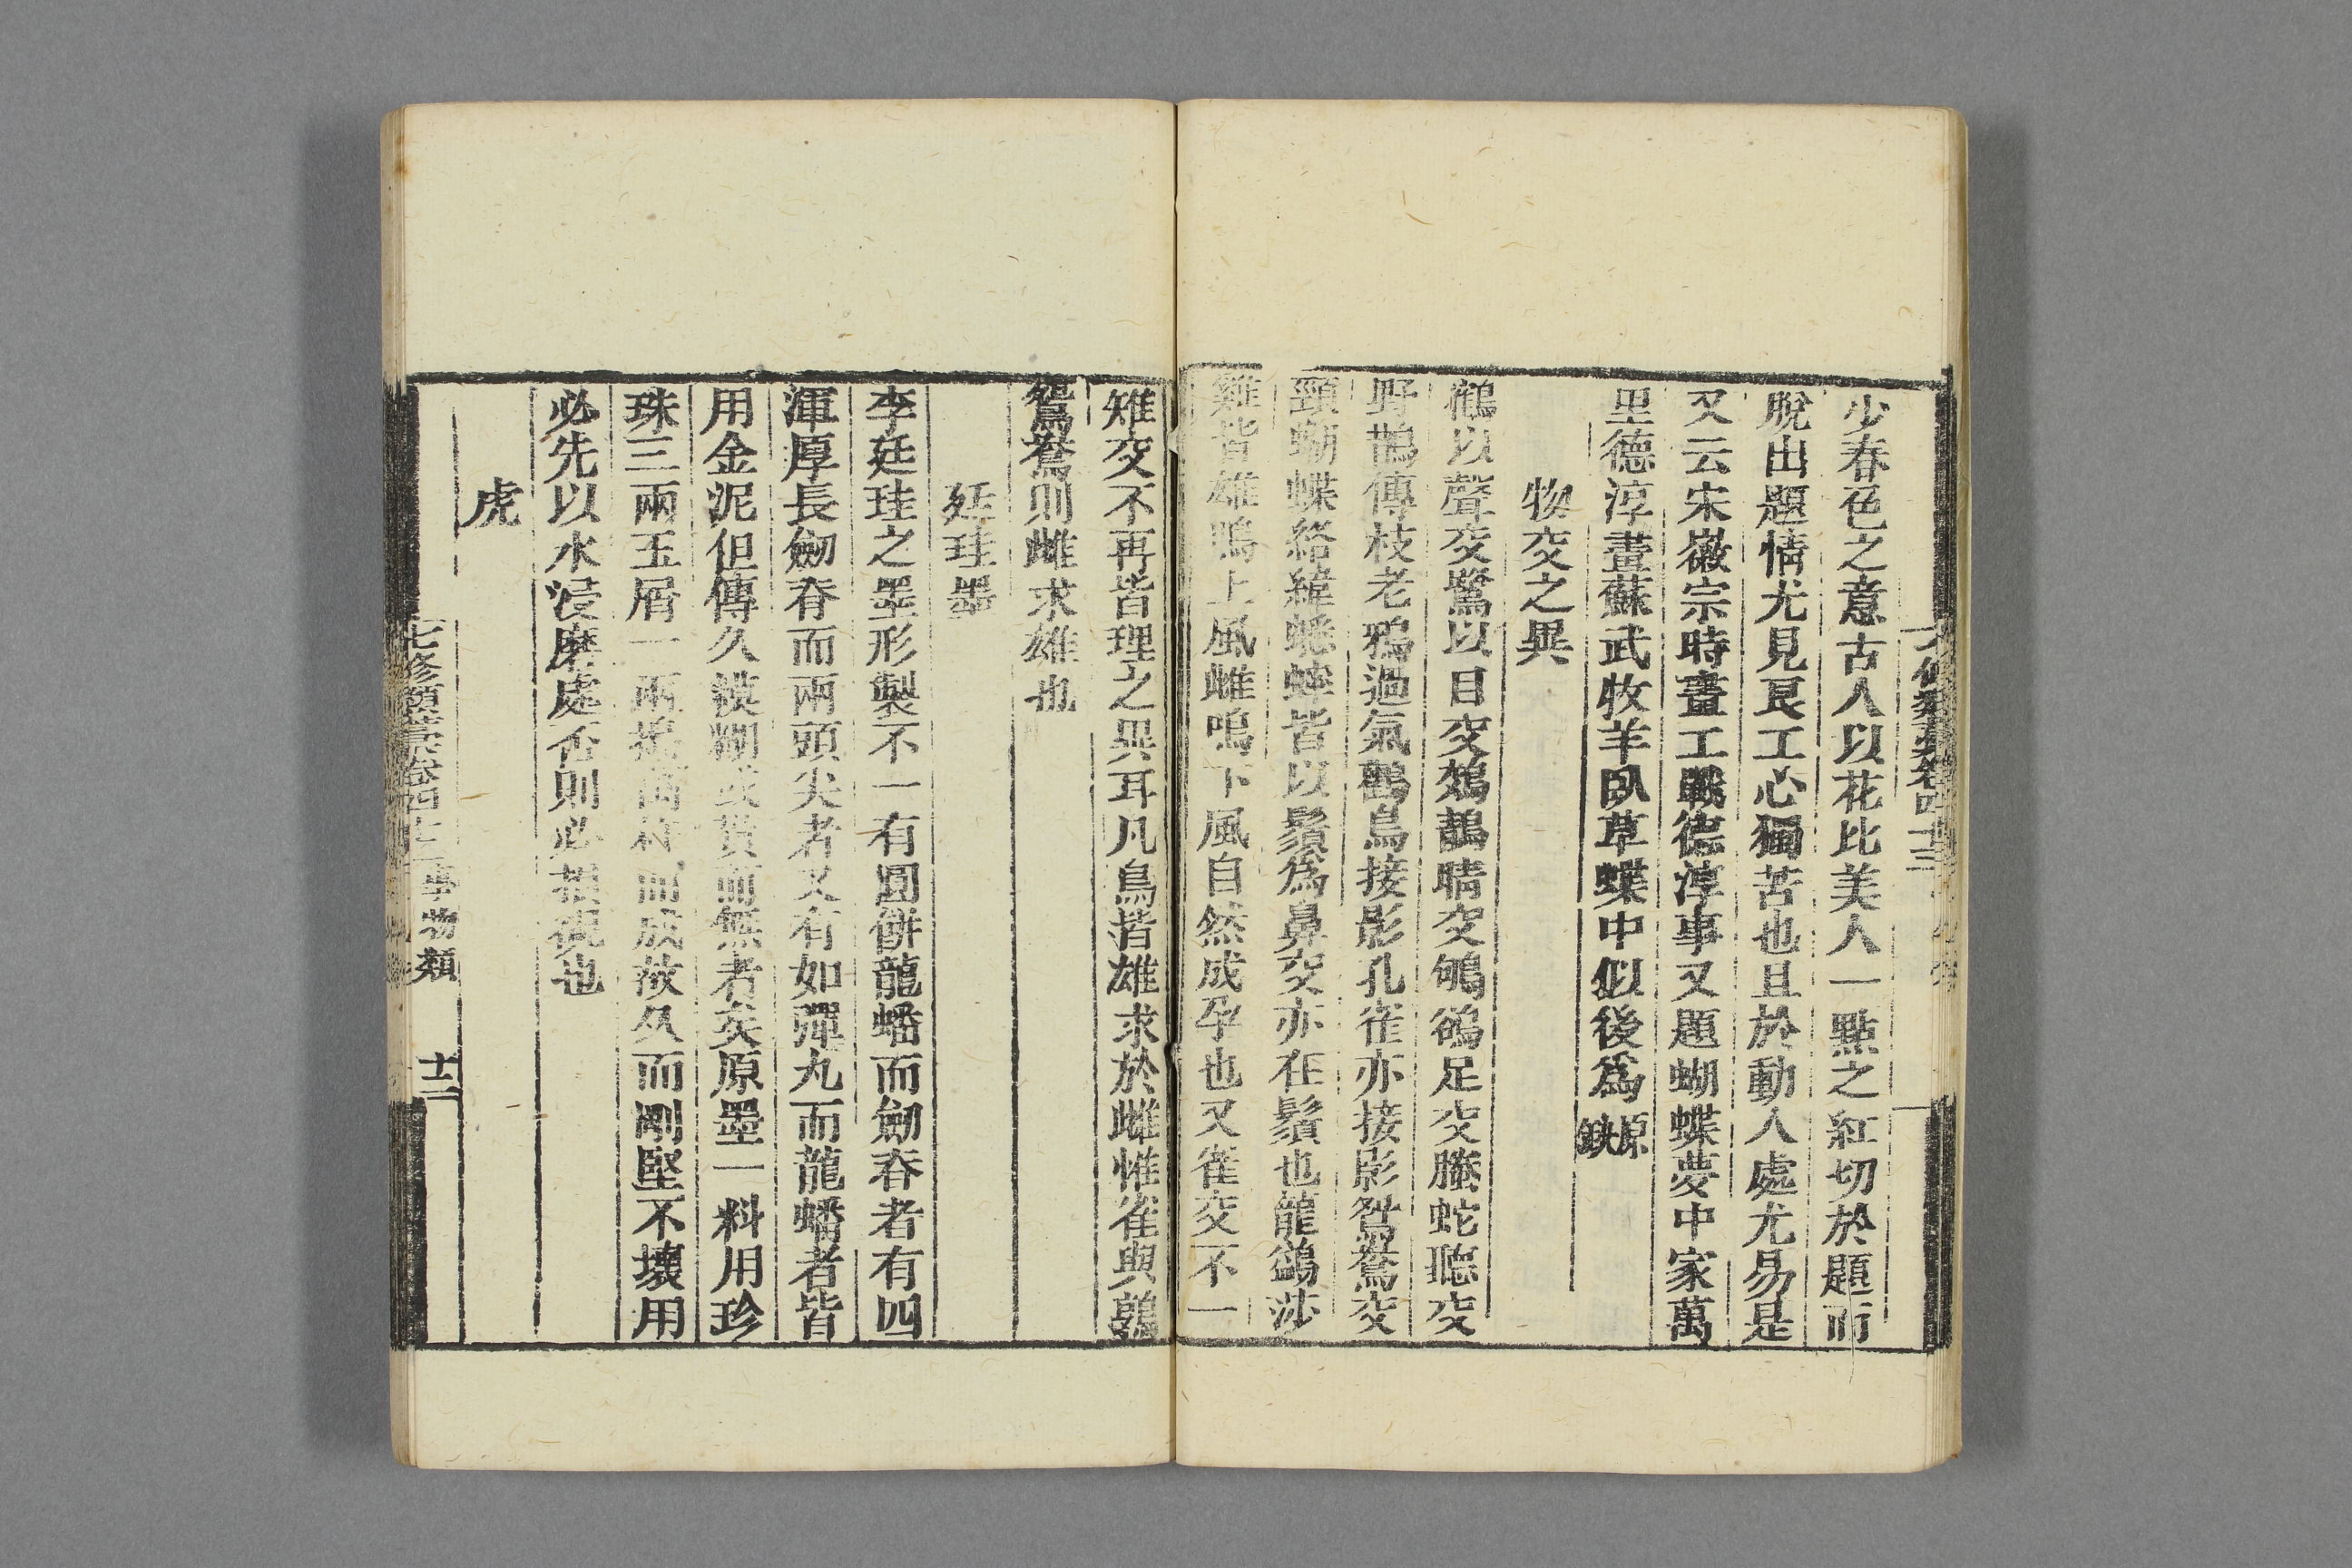 少春色之意古人以花比美人一點之紅切於題而
脫出題情尤見良工心獨苦也且於動人處尤易是
又云宋徽宗時畫工戰德淳事又題蝴蝶夢中家萬
里德淳畫蘇武牧羊臥草蝶中似後爲原缺
物交之異
鶴以聲交鷺以目交鵁鶄睛交鴝鵒足交螣蛇聽交
野鵲傳枝老鴉過氣鸛鳥接影孔雀亦接影鴛鴦交
頸蝴蝶絡緯蟋蟀皆以鬚爲鼻交亦在鬚也龍鷁莎
雞皆雄鳴上風雌鳴下風自然成孕也又雀交不一
雉交不再皆理之異耳凡鳥皆雄求於雌惟雀與鶉
鴛鴦則雌求雄也
廷珪墨
李廷珪之墨形製不一有圓餅龍蟠而劒脊者有四
渾厚長劒脊而兩頭尖者又有如彈丸而龍蟠者皆
用金泥但傳久糢糊或貰而無者矣原墨一料用珍
珠三兩玉屑一兩搗萬杵而成故久而剛堅不壞用
必先以水浸磨處否則必損硯也
虎
七修類藁卷四十三 事物類 十二